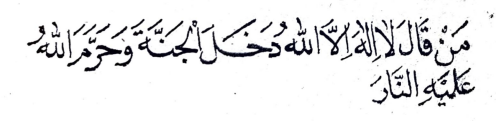 مَنْ قَالَ لَا اِلٰهَ اِلَّا اللهُ دَخَلَ الْجَنَّةَ وَحَرَّمَ اللهُ
عَلَيْهِ النَّارَ